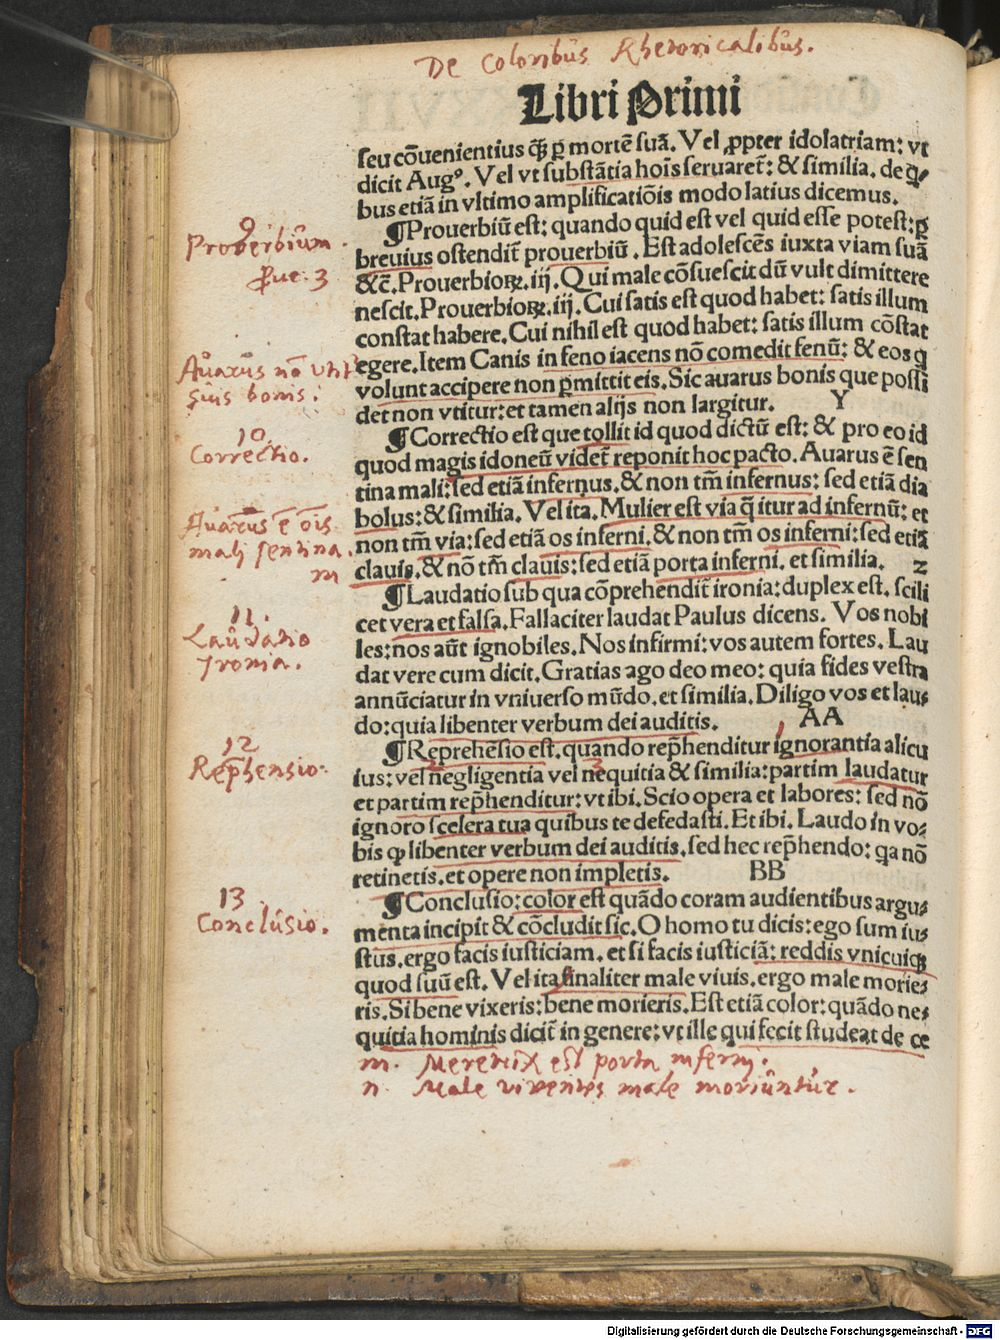 De Coloribus Rhetoricalibus.
Libri Primi
seu cōuenientius q̄ꝫ ꝑ mortē suā. Vel ꝓpter idolatriam: vt
dicit Augꝰ. Vel vt substātia hoīs seruaret᷑: & similia. de q̄-
bus etiā in vltimo amplificatiōis modo latius dicemus.
9
Prouerbium.
Proue: 3
¶Prouerbiū est: quando quid est vel quid esse potest: ꝑ
breuius ostendit᷑ prouerbiū. Est adolescēs iuxta viam suā
&c̄. Prouerbioꝝ. iij. Qui male cōsuescit dū vult dimittere
nescit. Prouerbioꝝ. iij. Cui satis est quod habet: satis illum
constat habere. Cui nihil est quod habet: satis illum cōstat
Auarus nō vtit᷑
suis bonis:
egere. Item Canis in feno iacens nō comedit fenū: & eos q̄
volunt accipere non ꝑmittit eis. Sic auarus bonis que possi
det non vtitur: et tamen alijs non largitur. Y
10.
Correctio.
¶Correctio est que tollit id quod dictū est: & pro eo id
quod magis idoneū videt᷑ reponit hoc pacto. Auarus ē sen
tina mali: sed etiā infernus. & non tm̄ infernus: sed etiā dia
Auarus ē oīs
mali sentina.
m
bolus: & similia. Vel ita. Mulier est via q̄ itur ad infernū: et
non tm̄ via: sed etiā os inferni. & non tm̄ os inferni: sed etiā
clauis. & nō tm̄ clauis: sed etiā porta inferni. et similia. z
11.
Laudatio
Ironia.
¶Laudatio sub qua cōprehendit᷑ ironia: duplex est. scili
cet vera et falsa. Fallaciter laudat Paulus dicens. Vos nobi
les: nos aūt ignobiles. Nos infirmi: vos autem fortes. Lau
dat vere cum dicit. Gratias ago deo meo: quia fides vestra
annūciatur in vniuerso mūdo. et similia. Diligo vos et lau-
do: quia libenter verbum dei auditis. AA
12
Rep̄hensio.
¶Reprehēsio est. quando rep̄henditur ignorantia alicu
ius: vel negligentia vel nequitia & similia: partim laudatur
et partim rep̄henditur: vt ibi. Scio opera et labores: sed nō
ignoro scelera tua quibus te defedasti. Et ibi. Laudo in vo-
bis ꝙ libenter verbum dei auditis. sed hec rep̄hendo: qa nō
retinetis. et opere non impletis. BB
13
Conclusio.
¶Conclusio: color est quādo coram audientibus argu-
menta incipit & cōcludit sic. O homo tu dicis: ego sum iu-
stus. ergo facis iusticiam. et si facis iusticiā: reddis vnicuiqꝫ
quod suū est. Vel ita finaliter male viuis. ergo male morie-
ris. Si bene vixeris: bene morieris. Est etiā color: quādo ne-
quitia hominis dicit᷑ in genere: vt ille qui fecit studeat de ce
m. Meretrix est porta inferni.
n. Male viventes male moriuntur.
Digitalisierung gefördert durch die Deutsche Forschungsgemeinschaft - DFG